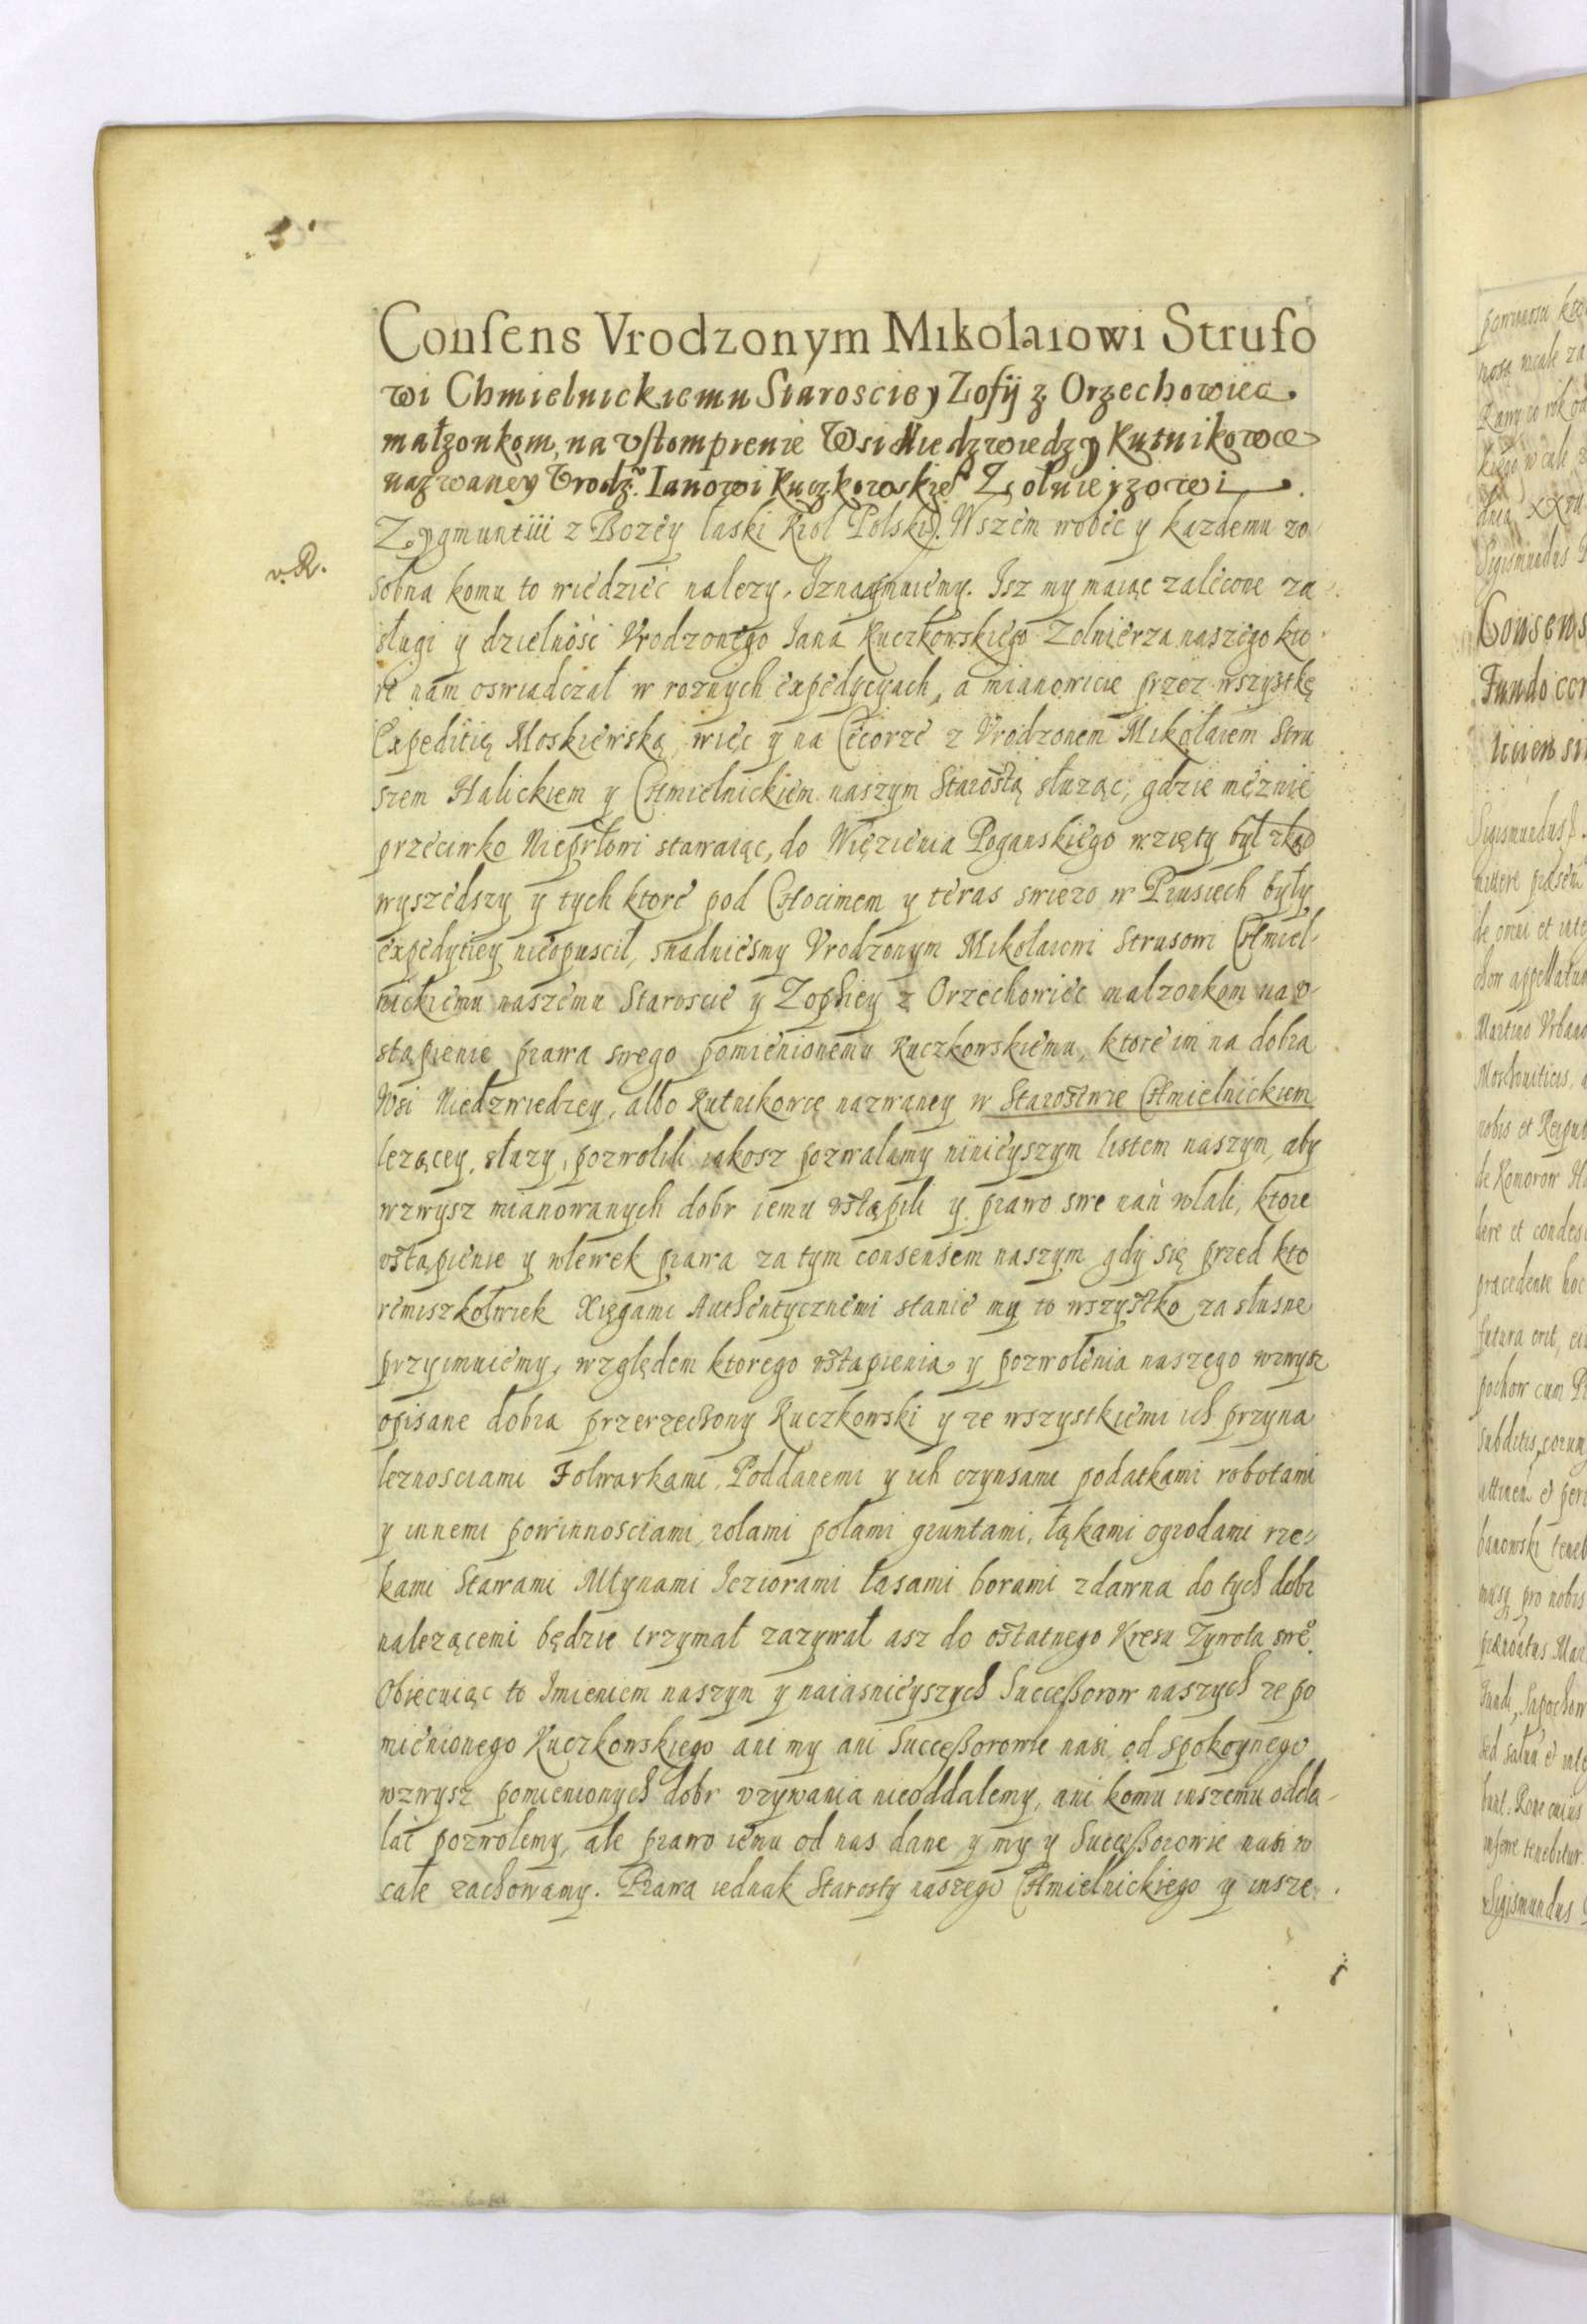 Consens Vrodzonym Mikolaiowi Struso
wi Chmielnickiemu Staroscie y Zofij z Orzechowiec
małzonkom, na vstompienie Wsi Niedzwiedzy Kutnikowce
nazwaney Vrodz. Ianowi Kuczkowskie° Zołnierzowi
Zygmunt iii z Bozey łaski Krol Polski). Wszem wobec y kazdemu zo
v. R.
sobna komu to wiedziec nalezy, Oznaymuiemy. Isz my maiąc zalecone za
sługi y dzielnośc Vrodzonego Iana Kuczkowskiego Zolnierza naszego kto
re nam oswiadczał w roznych expedycyach, a mianowicie przez wszystkę
Expeditię Moskiewską, więc y na Cecorze z Vrodzonem Mikołaiem Stru
szem Halickiem y Chmielnickiem naszym Starostą służąc, gdzie męznie
przeciwko Nieprłowi stawaiąc, do Więzienia Poganskiego wzięty był zkąd
wyszedszy y tych ktore pod Chocimem y teras swiezo w Prusiech były
expedytiey nieopuscił, snadniesmy Vrodzonym Mikołaiowi Strusowi Chmiel-
nickiemu naszemu Staroscie y Zophiey z Orzechowiec małzonkom na v-
stąpienie prawa swego pomienionemu Kuczkowskiemu, ktore im na dobra
Wsi Niedzwiedzey, albo Kutnikowcę nazwaney w Starostwie Chmielnickiem
lezącey, słuzy, pozwolili iakosz pozwalamy ninieyszym listem naszym, aby
wzwysz mianowanych dobr iemu vstąpili y prawo swe nań wlali, ktore
vstąpienie y wlewek prawa za tym consensem naszym gdy się przed kto
remiszkolwiek Xięgami Authentycznemi stanie my to wszystko za słusne
przyimuiemy, względem ktorego vstapienia y pozwolenia naszego wzwysz
opisane dobra przerzeczony Kuczkowski y ze wszystkiemi ich przyna
leznosciami Folwarkami, Poddanemi y ich czynsami podatkami robotami
y innemi powinnosciami, rolami polami gruntami, łąkami ogrodami rze-
kami Stawami Młynami Ieziorami lasami borami zdawna do tych dobr
nalezącemi będzie trzymał zazywał asz do ostatnego Kresu Zywota swe°.
Obiecuiąc to Imieniem naszym y naiasnieyszych Successorow naszych ze po
mienionego Kuczkowskiego ani my ani Successorowie nasi, od spokoynego
wzwysz pomienionych dobr vzywania nieoddalemy, ani komu inszemu odda-
lać pozwolemy, ale prawo iemu od nas dane y my y Successorowie nasi w
cale zachowamy. Prawa iednak Starosty naszego Chmielnickiego y insze